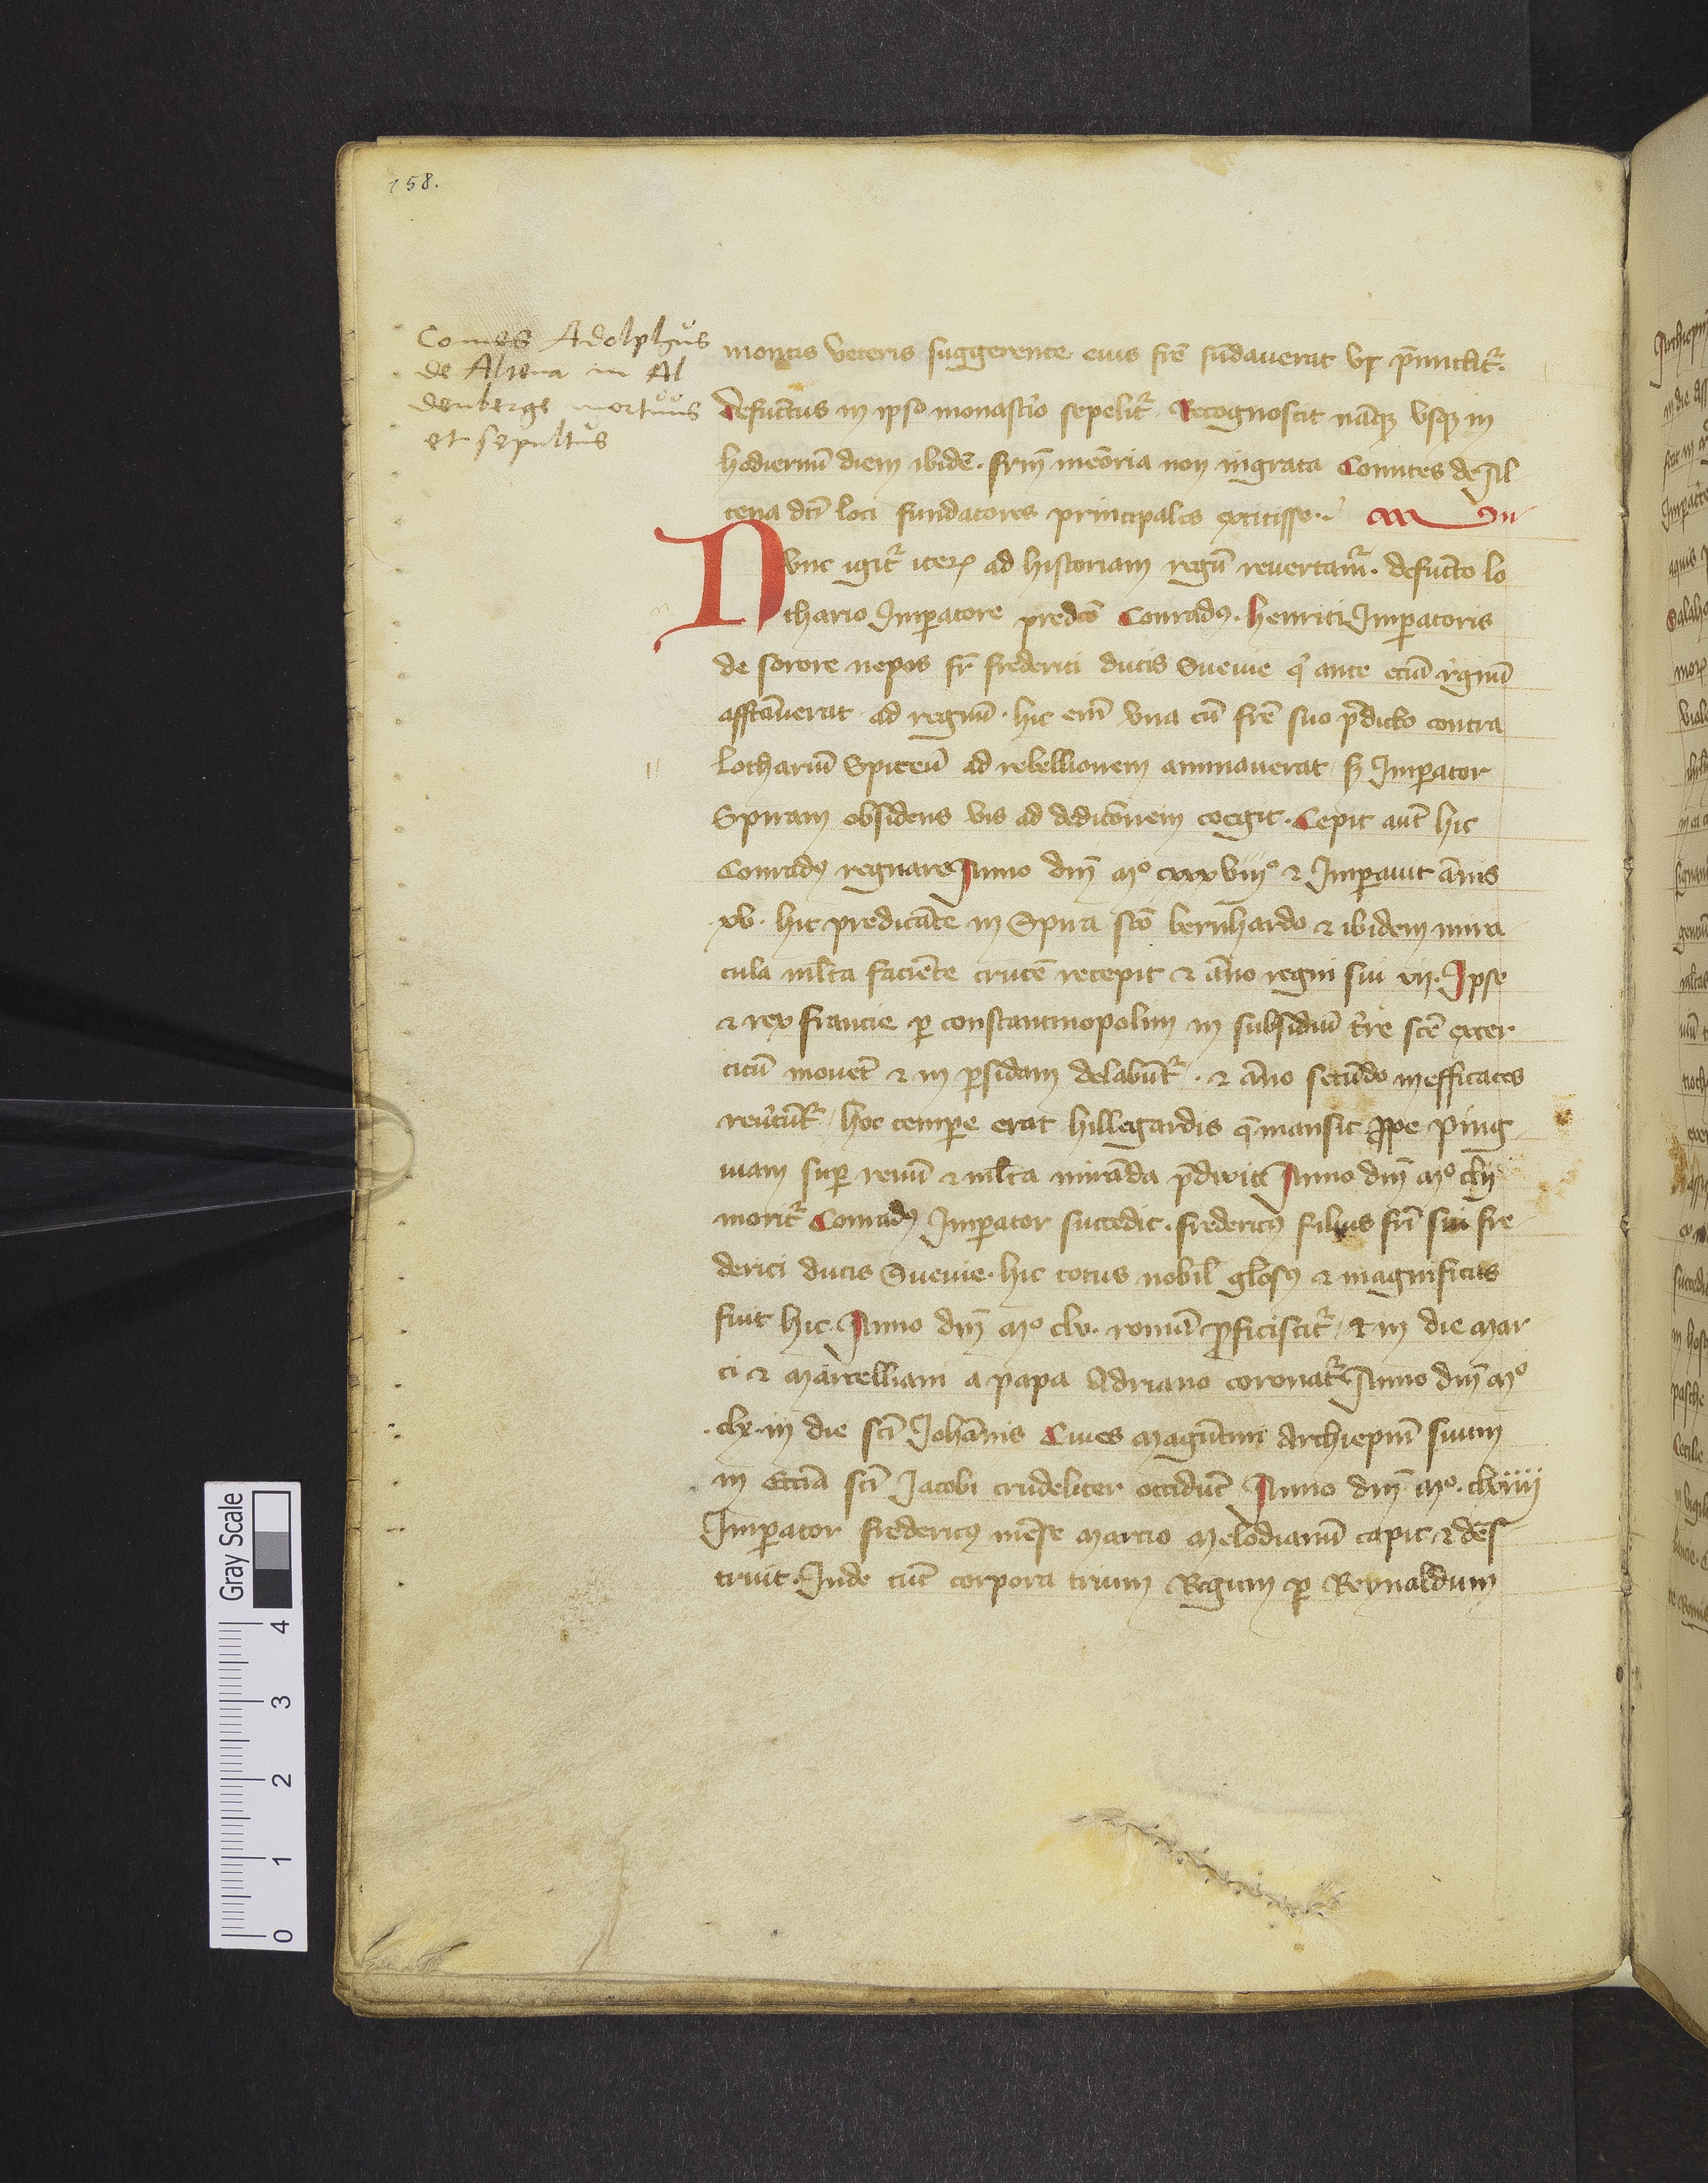 158.
Comes Adolphus
de Altena in Al
denberge mortuus
et sepultus
montis veteris suggerente eius fr̄e fūdauerat vt p̄mittit᷑.
defunctus in ipso monast'io sepelit᷑. Recognoscit nāq̄ vsq̄ in
hodiernū diem ibidē. frm̄ memōria non ingrata Comites de Al
tena dc̄i loci fundatores principales extitisse.
Nvnc igit᷑ iteꝝ ad historiam regū reuertam᷑. defuncto lo
thario Imꝑatore predc̄o Conradꝯ. henrici Imꝑatoris
de sorore nepos fr̄ frederici ducis Sueuie q' ante eciā regnū
affectāuerat ad regnū. hic em̄ vna cū fr̄e suo p̄dicto contra
lothariū Spireū ad rebellionem animauerat sꝫ Imꝑator
Spiram obsidens vis ad dedicōnem coegit. Cepit aut̄ hic
Conradꝯ regnare Anno dn̄i mº cxxxviijº et Imꝑauit ānis
xv. hic predicāte in Spira sc̄o bernhardo et ibidem mira
cula ml̄ta faciēte crucē recepit et āno regni sui vij. Ipse
et rex francie ꝑ constantinopolim in subsidiū t're sc̄e exer
citū mouet et in ꝑsidam delabūt᷑. et āno secūdo inefficaces
reu'tūt᷑. hoc tempe erat hillegardis q̄ mansit ꝓpe ping
wiam suꝑ renū et ml̄ta mirāda p̄dixit Anno dn̄i mº clij
morit᷑ Conradꝯ Imꝑator succedit. fredericꝯ filius fr̄is sui fre
derici ducis Sueuie. hic totus nobil' gl̄osꝯ et magnificus
fuit hic. Anno dn̄i mº clv. romā ꝓficiscit᷑. et in die mar
ci et marcelliani a papa Adriano coronat᷑ Anno dn̄i mº
.clx. in die sc̄i Johānis Ciues magūtini Archiep̄m suum
in Ecc̄ia sc̄i Jacobi crudeliter occidūt Anno dn̄i mº. clxiiij
Imꝑator fredericꝯ mēse marcio melodianū capit et des
truit. Inde tūc corpora trium Regum ꝑ Reynaldum
Gray Scale
4
3
2
1
0